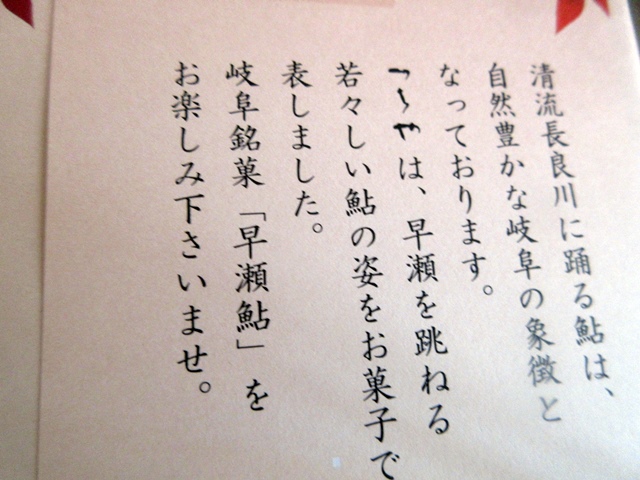 清流長良川に踊る鮎は、
自然豊かな岐阜の象徴と
なっております。
は、早瀬を跳ねる
若々しい鮎の姿をお菓子で
表しました。
岐阜銘菓「早瀬鮎」を
お楽しみ下さいませ。